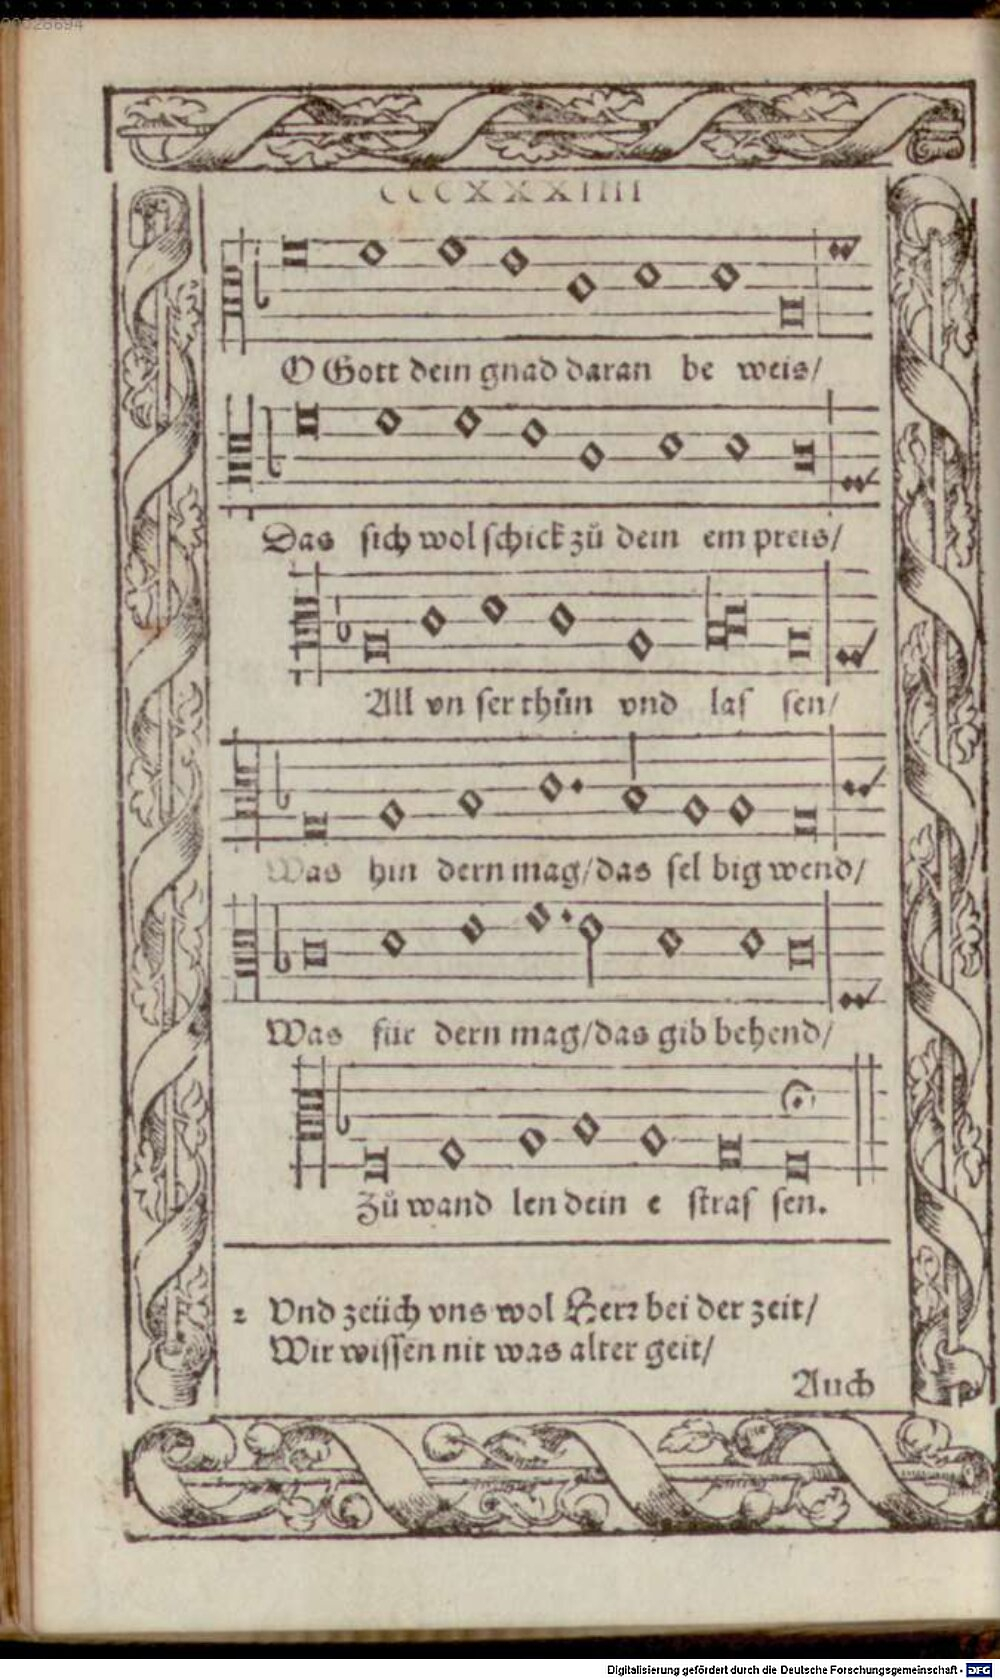 00026694
CCCXXXIIII
O Gott dein gnad daran be weis/
Das sich wol schick zů dein em preis/
All vn ser thůn vnd las sen/
Was hin dern mag/das sel big wend/
Was für dern mag/das gib behend/
Zů wand len dein e stras sen.
2 Vnd zeüch vns wol Herr bei der zeit/
Wir wissen nit was alter geit/
Auch
Digitalisierung gefördert durch die Deutsche Forschungsgemeinschaft - DFG